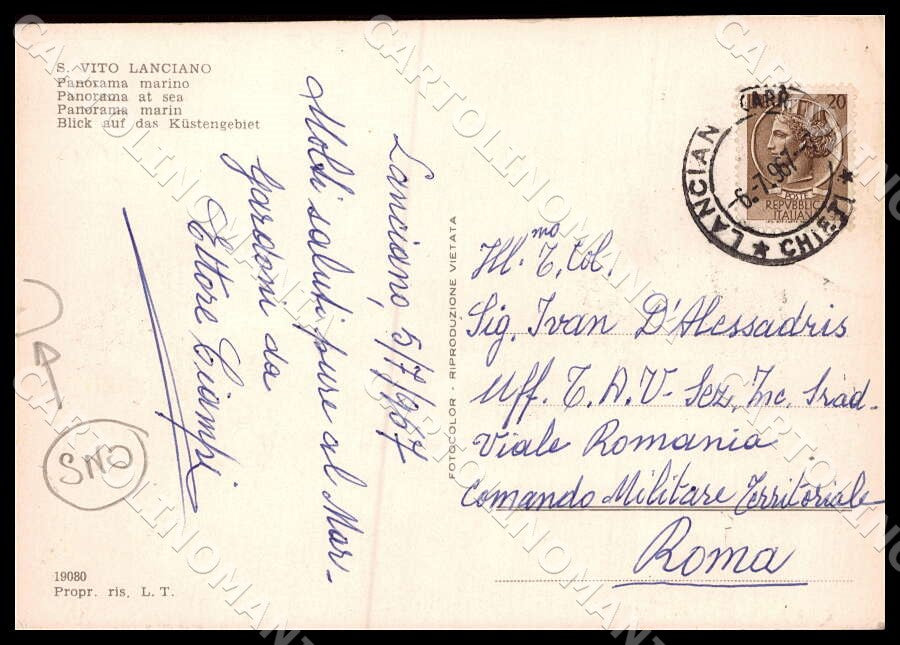 S. VITO LANCIANO
Panorama marino
Panorama at sea
Panorama marin
Blick auf das Küstengebiet
Lanciano, 5/7/967
Molti saluti pure al Mar-
da
Ettore Ciampi
19080
Propr. ris. L. T.
FOTOCOLOR - RIPRODUZIONE VIETATA
20
POSTE
REPVBBLICA
ITALIANA
LANCIAN CARR
CHIETI
6.-7.967
Ill.mo T. Col.
Sig. Ivan D'Alessadris
Uff. T.A.V- Sez. Inc. Srad-
Viale Romania
Comando Militare Territoriale
Roma
SNO
CARTOLINOMANIA